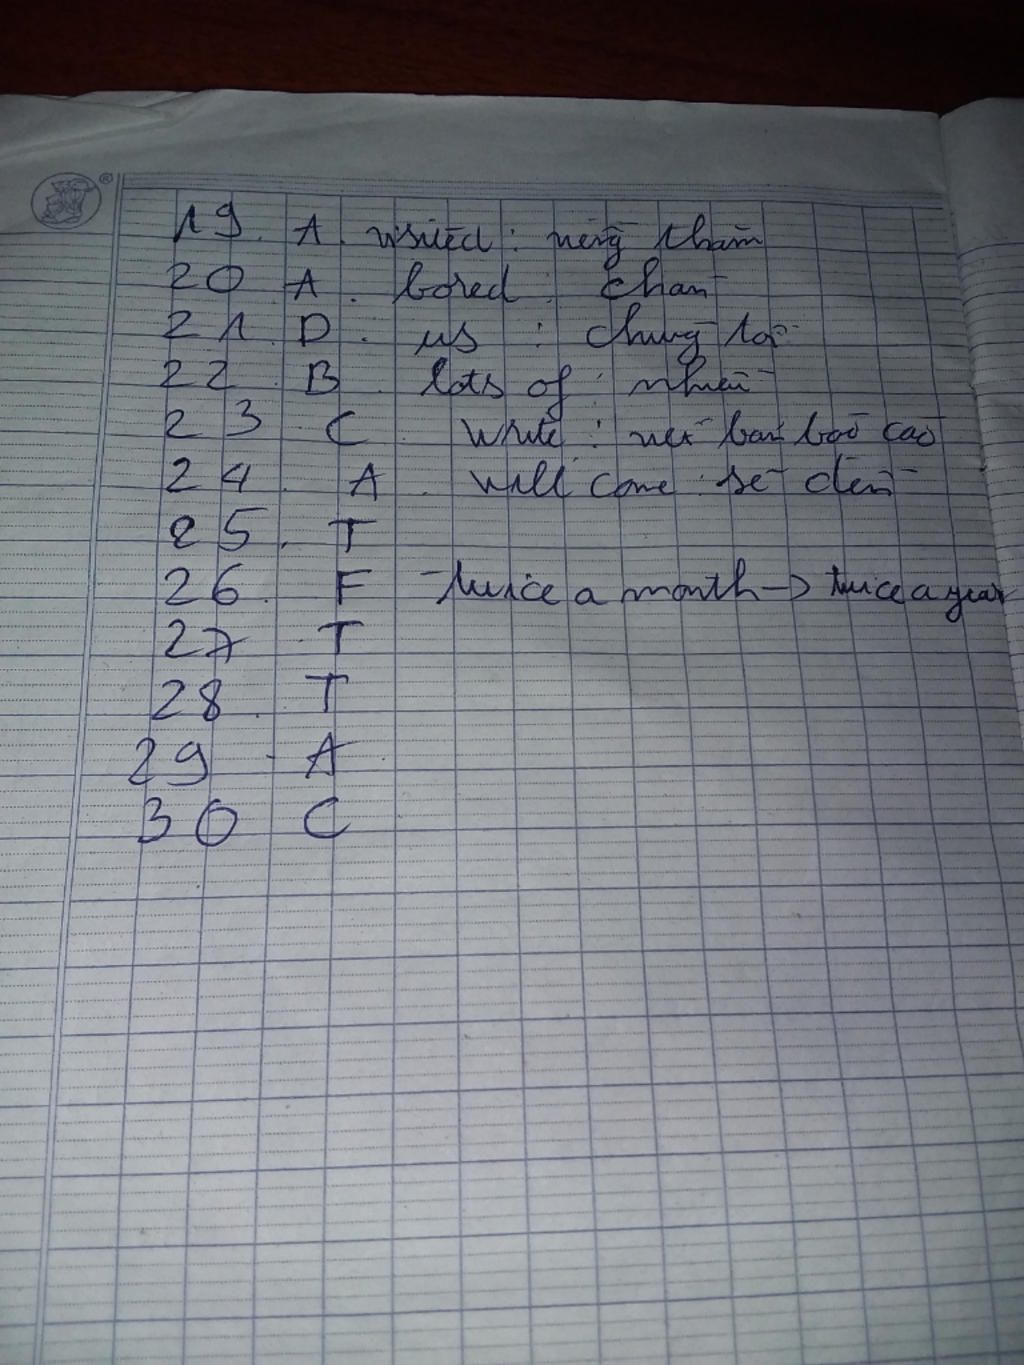 19. A. visited : viếng thăm
20 A. bored : chán
21. D. us : chúng tôi
22. B. lots of : nhiều
23 C. write : viết bản báo cáo
24. A. will come : sẽ đến
25. T
26. F twice a month -> twice a year
27 T
28. T
29 - A
30 C